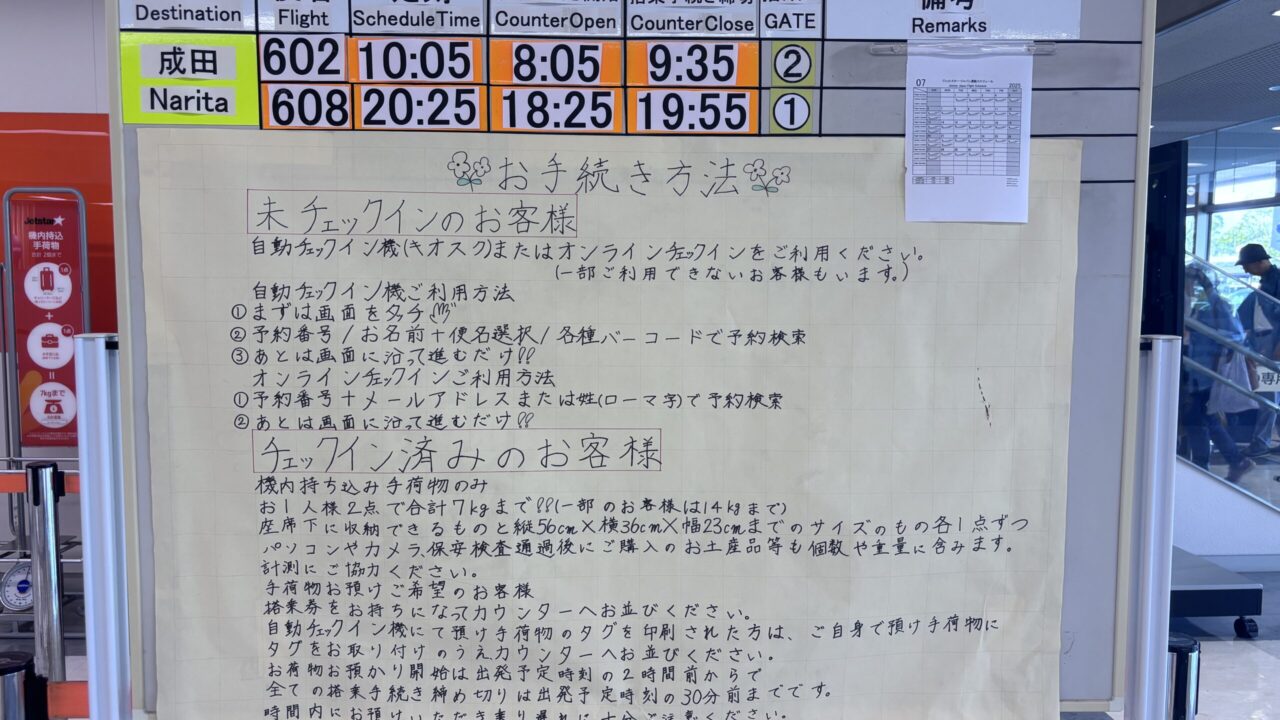 Destination
Flight
ScheduleTime
CounterOpen
CounterClose
GATE
備考
Remarks
成田
Narita
602 10:05 8:05 9:35 2
608 20:25 18:25 19:55 1
07
2025
お手続き方法
未チェックインのお客様
自動チェックイン機(キオスク)またはオンラインチェックインをご利用ください。
(一部ご利用できないお客様もいます。)
自動チェックイン機ご利用方法
①まずは画面をタッチ
②予約番号/お名前+便名選択/各種バーコードで予約検索
③あとは画面に沿って進むだけ!!
オンラインチェックインご利用方法
①予約番号+メールアドレスまたは姓(ローマ字)で予約検索
②あとは画面に沿って進むだけ!!
チェックイン済みのお客様
機内持ち込み手荷物のみ
お1人様2点で合計7kgまで!!(一部のお客様は14kgまで)
座席下に収納できるものと縦56cm×横36cm×幅23cmまでのサイズのもの各1点ずつ
パソコンやカメラ、保安検査通過後にご購入のお土産品等も個数や重量に含みます。
計測にご協力ください。
手荷物お預けご希望のお客様
搭乗券をお持ちになってカウンターへお並びください。
自動チェックイン機にて預け手荷物のタグを印刷された方は、ご自身で預け手荷物に
タグをお取り付けのうえカウンターへお並びください。
お荷物お預かり開始は出発予定時刻の2時間前からで
全ての搭乗手続き締め切りは出発予定時刻の30分前までです。
時間内にお預けいただき乗り遅れに十分ご注意ください。
Jetstar
機内持込
手荷物
合計 2個まで
+
7kgまで
専